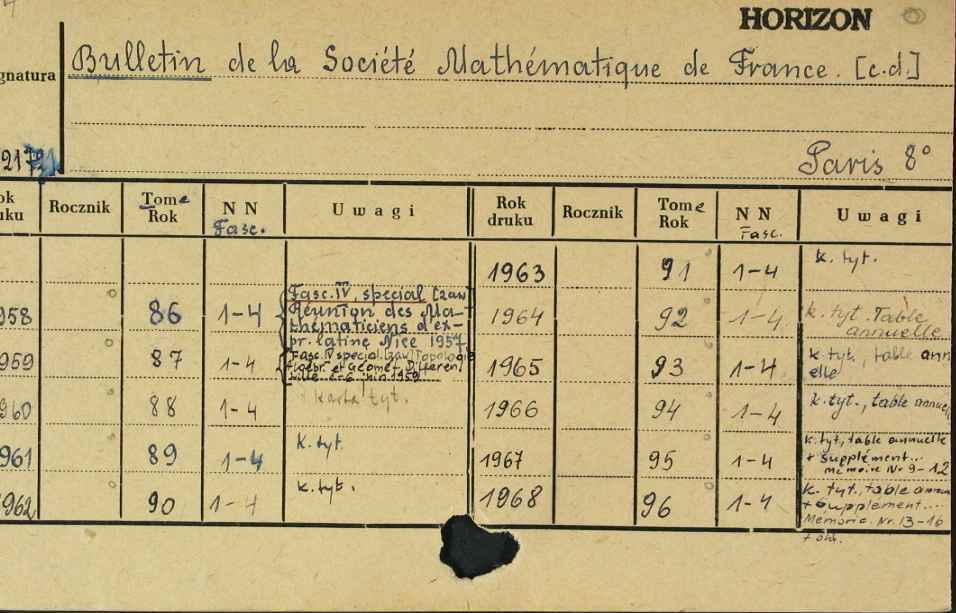 HORIZON
gnatura
Bulletin de la Société Mathématique de France. [c.d.]
217
Paris 8°
ok
uku Rocznik Tome
Rok N N
Fasc. Uwagi Rok
druku Rocznik Tome
Rok N N
Fasc. Uwagi
1963 91 1-4 k. tyt.
958 86 1-4 Fasc. IV, special [zaw
Réunion des Ma-
thématiciens d'ex-
pr. latine Nice 1957
1964 92 1-4 k. tyt. Table
annuelle
959 87 1-4 Fasc. IV special. [zaw] Topologie
et Géomet. Différen.
Lille 2-6 juin 1959
1965 93 1-4 k. tyt, table ann
elle
960 88 1-4 karta tyt.
1966 94 1-4 k. tyt., table annue
961 89 1-4 k. tyt.
1967 95 1-4 k. tyt, table annuelle
+ Supplément...
mémoire Nr 9-12
1962 90 1-4 k. tyt.
1968 96 1-4 k. tyt., table annu
+ supplement....
Memoric. Nr. 13-16
+ okł.